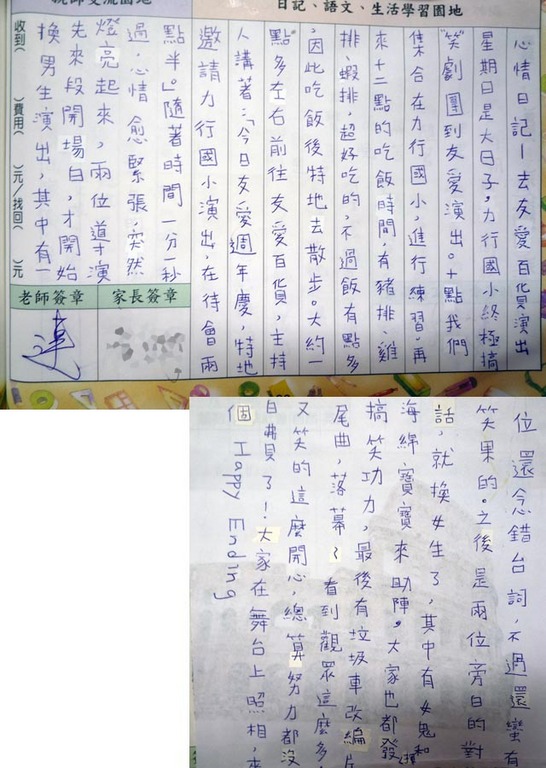 日記、語文、生活學習園地
親師交流園地
心情日記—去友愛百貨演出
星期日是大日子,力行國小終極搞
笑劇團到友愛演出。十點我們
集合在力行國小,進行練習,再
來十二點的吃飯時間,有豬排、雞
排、蝦排,超好吃的,不過飯有點多
,因此吃飯後特地去散步。大約一
點多左右前往友愛百貨,主持
人講著:「今日友愛週年慶,特地
邀請力行國小演出,在待會兩
點半。」隨著時間一分一秒
過,心情愈緊張,突然
燈亮起來,兩位導演
先來段開場白,才開始
換男生演出,其中有一
收到( )費用( )元/找回( )元
家長簽章
老師簽章
位還念錯台詞,不過還蠻有
笑果的。之後是兩位旁白的對
話,就換女生了,其中有女鬼和
海綿寶寶來助陣。大家也都發揮
搞笑功力,最後有垃圾車改編片
尾曲,落幕~看到觀眾這麼多
又笑的這麼開心,總算努力都沒
白費了!大家在舞台上照相,來
個 Happy Ending